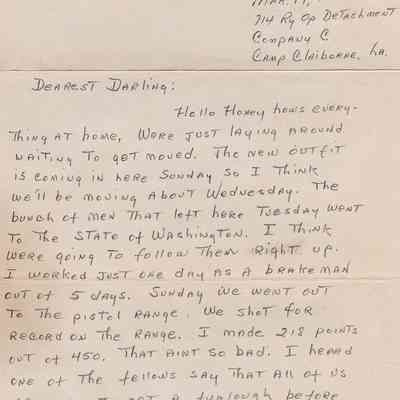 Mar. 17,
714 Ry Op Detachment
Company C
Camp Claiborne, La.
Dearest Darling:
Hello Honey hows every-
thing at home, Were just laying around
waiting to get moved. The new outfit
is coming in here Sunday so I think
we'll be moving about Wednesday. The
bunch of men that left here Tuesday went
to the State of Washington. I think
were going to follow them right up.
I worked just one day as a brakeman
out of 5 days. Sunday we went out
to the pistol range. We shot for
record on the range. I made 218 points
out of 450. That aint so bad. I heard
one of the fellows say that all of us
a furlough before